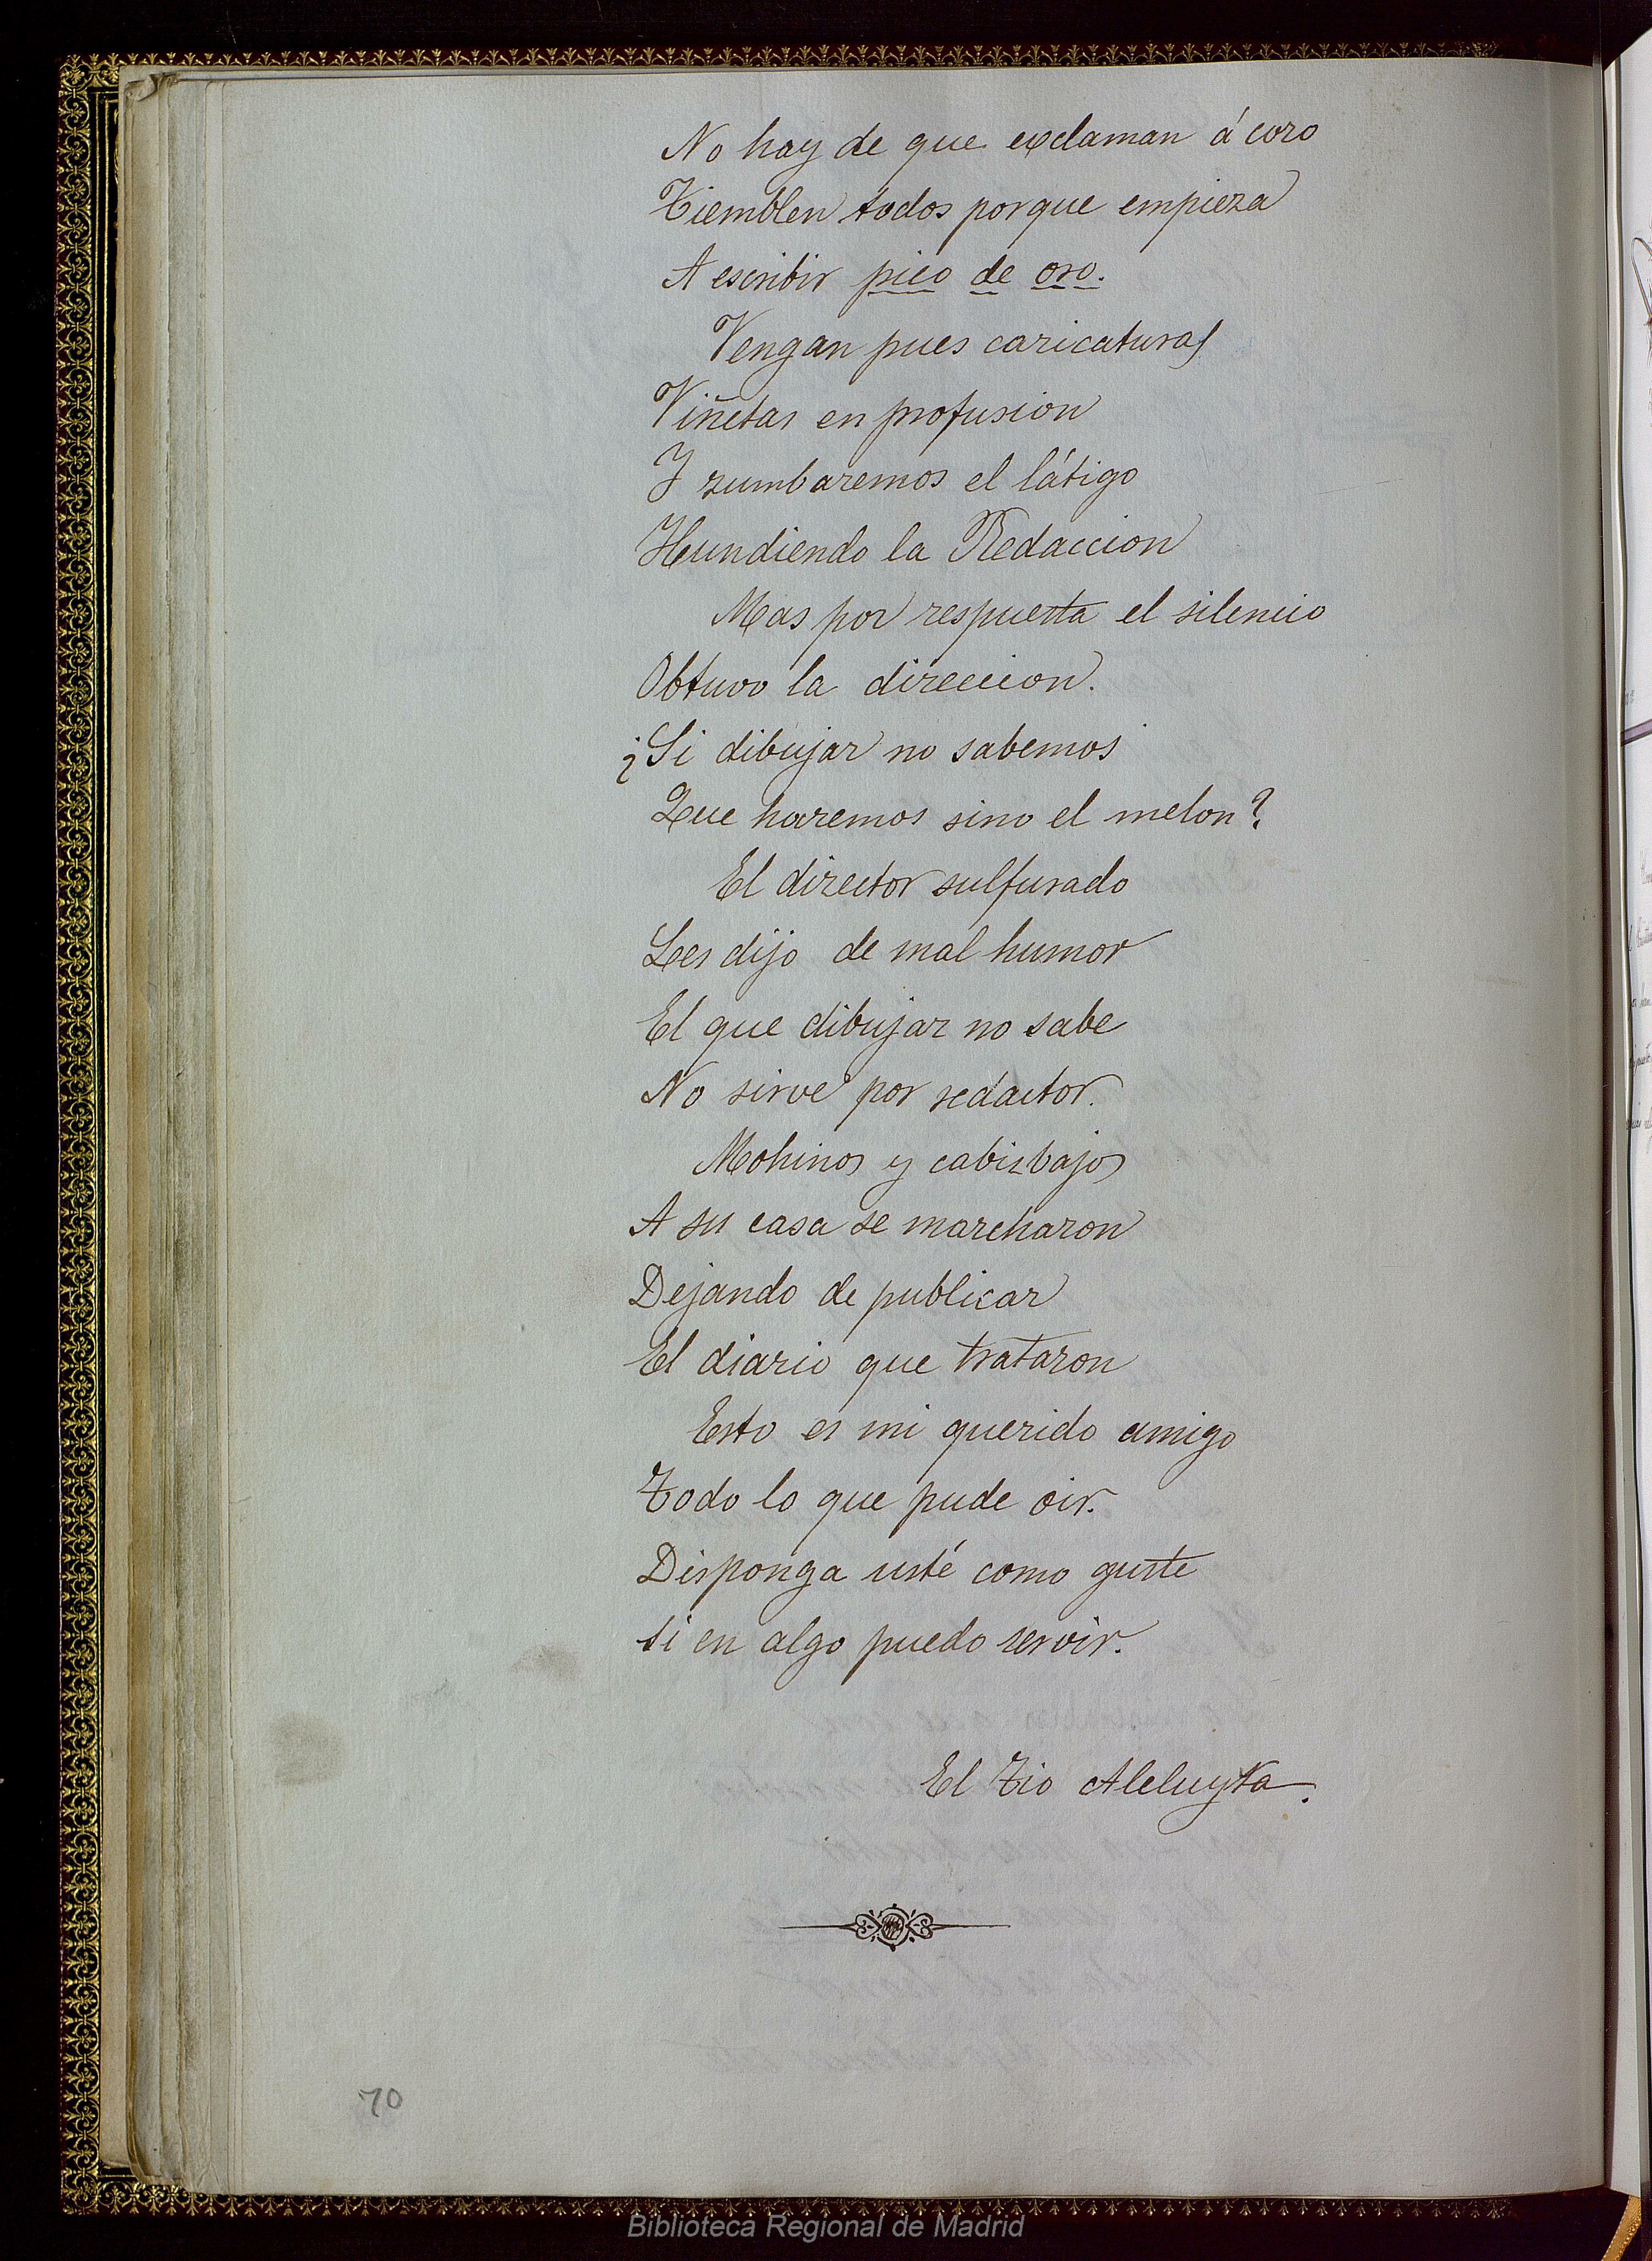 No hay de que exclaman á coro
Tiemblen todos porque empieza
A escribir pico de oro.
Vengan pues caricaturas
Viñetas en profusion
Y zumbaremos el látigo
Hundiendo la Redaccion
Mas por respuesta el silencio
Obtuvo la direccion.
¿Si dibujar no sabemos
Que haremos sino el melon?
El director sulfurado
Les dijo de mal humor
El que dibujar no sabe
No sirve por redactor.
Mohinos y cabizbajos
A su casa se marcharon
Dejando de publicar
El diario que trataron
Esto es mi querido amigo
Todo lo que pude oir.
Disponga usté como guste
si en algo puedo servir.
El Tio Aleluyta.
70
Biblioteca Regional de Madrid